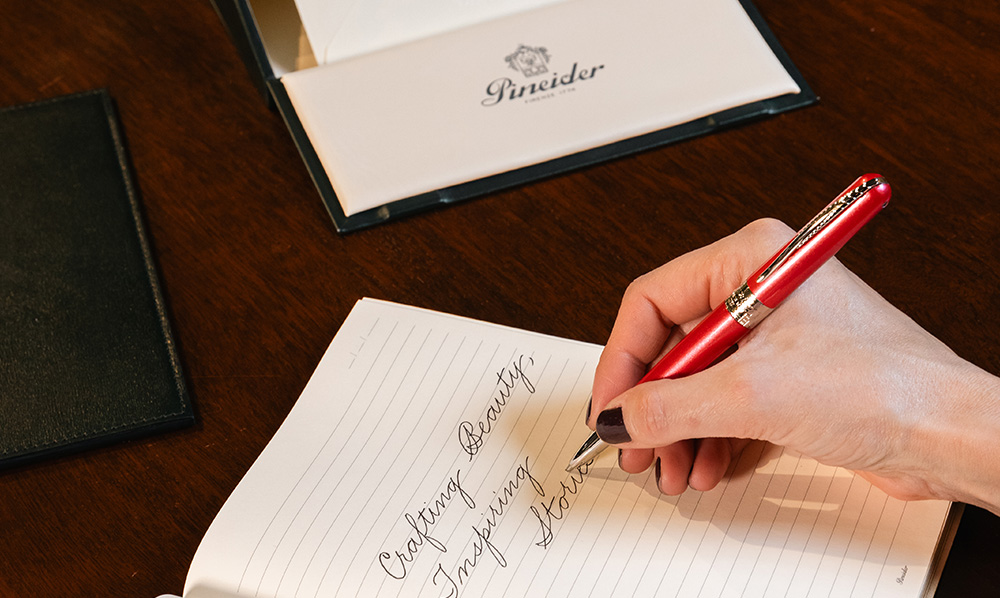 Pineider
FIRENZE 1774
Crafting Beauty,
Inspiring
Storia
Pineider